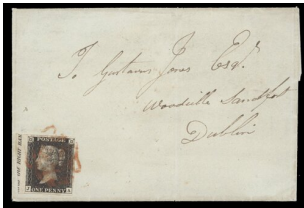 To Gustavus Jones Esqr.
Woodville Sandyfort
Dublin
POSTAGE
ONE PENNY